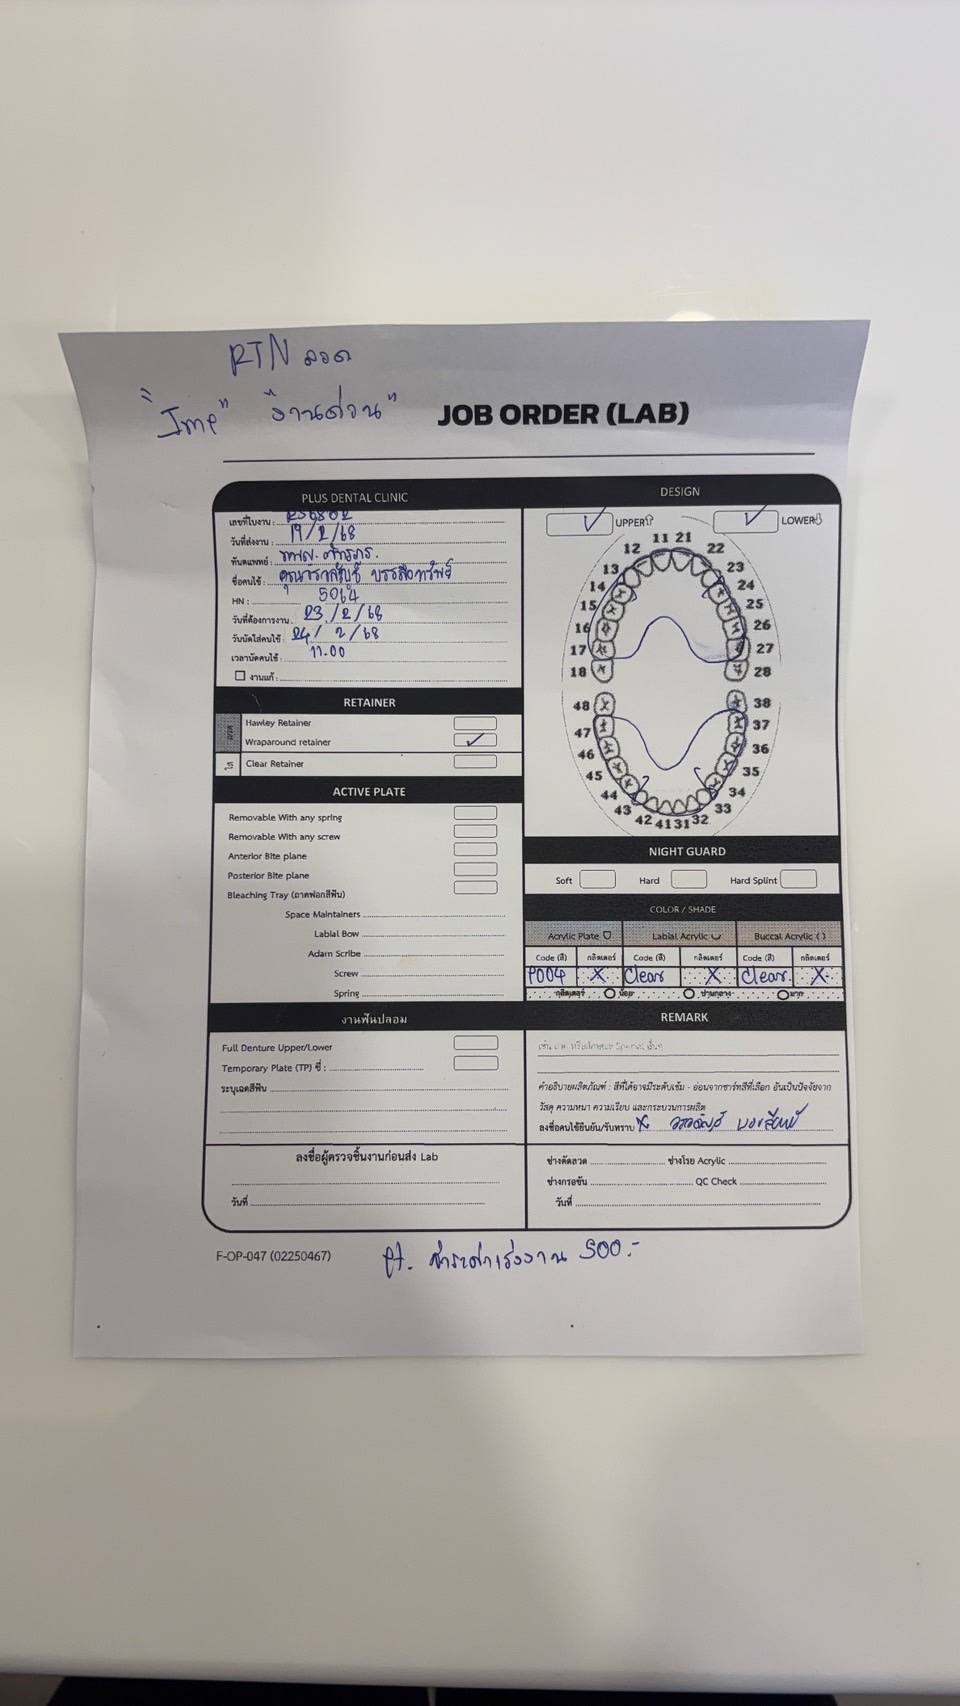 RTN ลวด
"Imp" "งานด่วน"
JOB ORDER (LAB)
PLUS DENTAL CLINIC
เลขที่ใบงาน :
วันที่ส่งงาน : 19/2/68
ทันตแพทย์ :
ชื่อคนไข้ :
HN : 5064
วันที่ต้องการงาน : 23/2/68
วันนัดใส่คนไข้ : 24/2/68
เวลานัดคนไข้ : 11.00
งานแก้ :
RETAINER
ลวด
Hawley Retainer
Wraparound retainer ✓
ใส
Clear Retainer
ACTIVE PLATE
Removable With any spring
Removable With any screw
Anterior Bite plane
Posterior Bite plane
Bleaching Tray (ถาดฟอกสีฟัน)
Space Maintainers
Labial Bow
Adam Scribe
Screw
Spring
งานฟันปลอม
Full Denture Upper/Lower
Temporary Plate (TP) ซี่ :
ระบุเฉดสีฟัน
ลงชื่อผู้ตรวจชิ้นงานก่อนส่ง Lab
วันที่
DESIGN
✓ UPPER ✓ LOWER
11 21
12 22
13 23
14 24
15 25
16 26
17 27
18 28
48 38
47 37
46 36
45 35
44 34
43 33
42 41 31 32
NIGHT GUARD
Soft Hard Hard Splint
COLOR / SHADE
Acrylic Plate Labial Acrylic Buccal Acrylic ( )
Code (สี) กลิตเตอร์ Code (สี) กลิตเตอร์ Code (สี) กลิตเตอร์
P004 X Clear X Clear X
กลิตเตอร์ น้อย ปานกลาง มาก
REMARK
คำอธิบายผลิตภัณฑ์ : สีที่ได้อาจมีระดับเข้ม - อ่อนจากชาร์ทสีที่เลือก อันเป็นปัจจัยจาก
วัสดุ ความหนา ความเรียบ และกระบวนการผลิต
ลงชื่อคนไข้ยืนยัน/รับทราบ
ช่างดัดลวด ช่างโรย Acrylic
ช่างกรอขัน QC Check
วันที่
F-OP-047 (02250467)
pt. ชำระค่าเร่งงาน 500.-